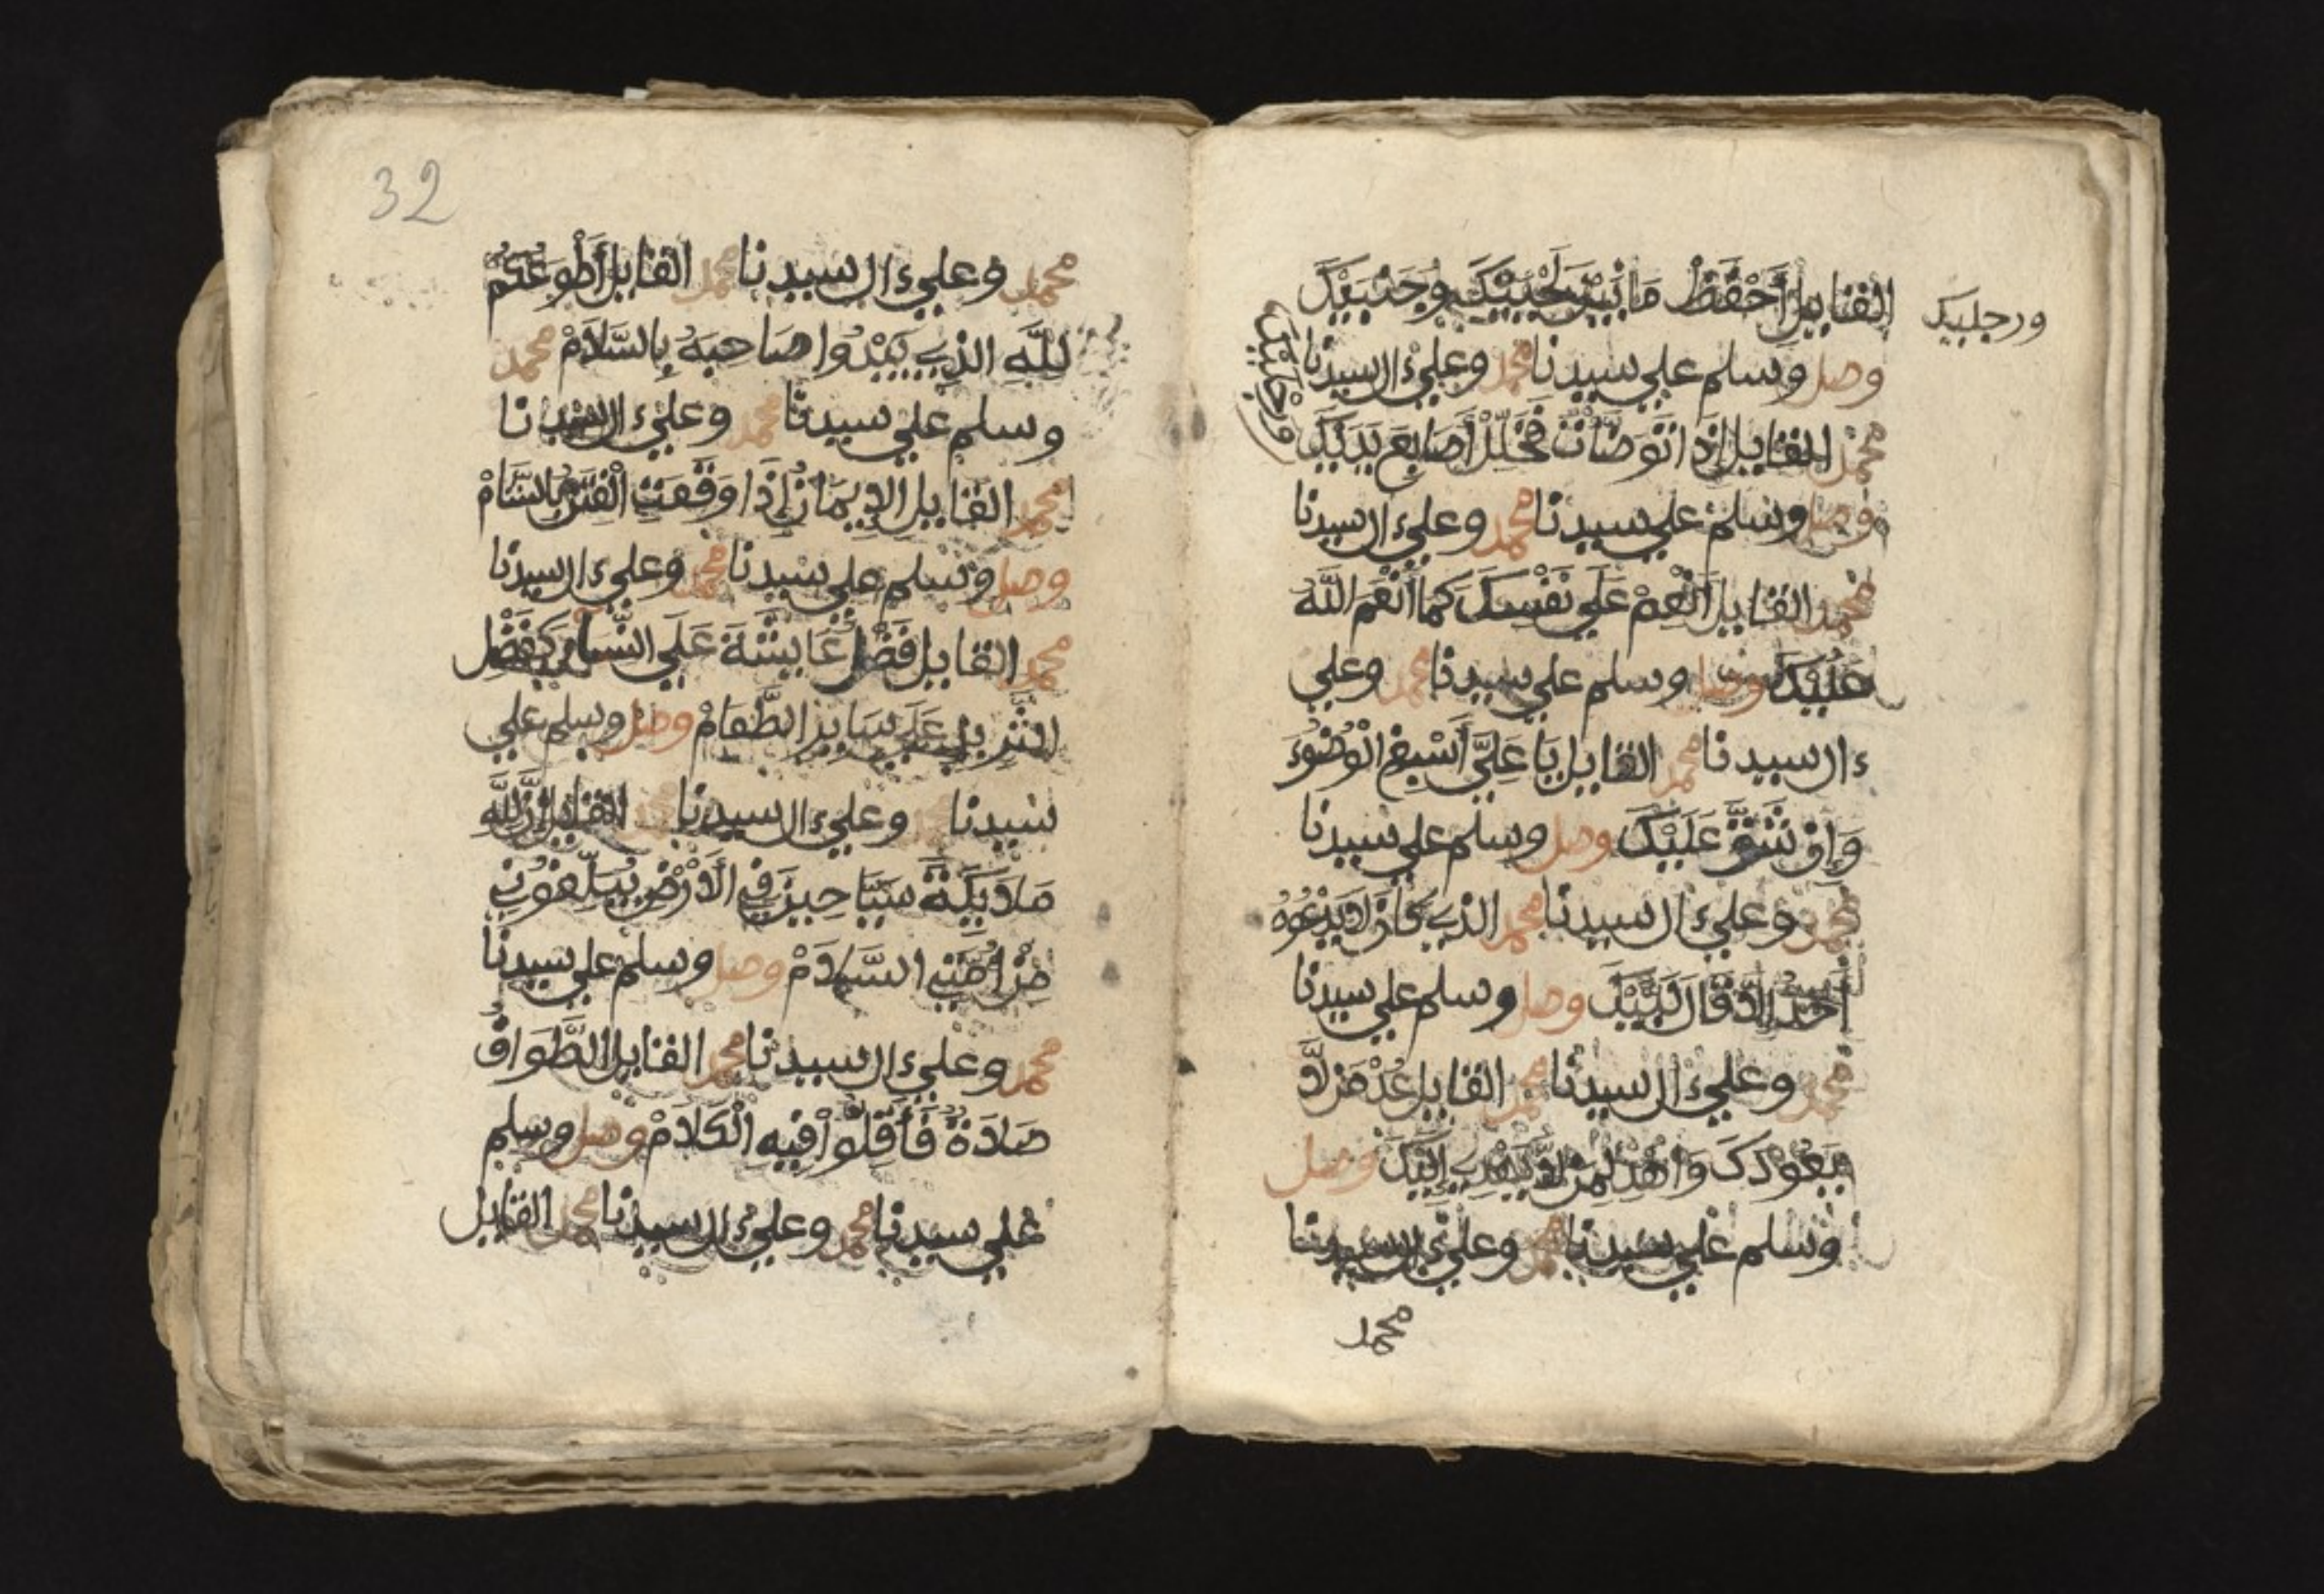 القايل أَحْفَظْ مَا بَيْنَ لَحْيَيْكَ وَجَنْبَيْكَ
ورجليك
وصل وسلم علي سيدنا محمد وعلي ءال سيدنا
ورجليك
محمد القايل إذا تَوَضَّأتَ فَخَلِّلْ أَصَابِعَ يَدَيْكَ
وصل وسلم علي سيدنا محمد وعلي ءال سيدنا
محمد القايل أَنْعِمْ عَلَي نَفْسِكَ كما أَنْعَمَ اللَّهُ
عَلَيْكَ وصل وسلم علي سيدنا محمد وعلي
ءال سيدنا محمد القايل يَا عَلِيُّ أَسْبِغِ الْوُضُوءَ
وَإِن شَقَّ عَلَيْكَ وصل وسلم علي سيدنا
محمد وعلي ءال سيدنا محمد الذي كَانَ لاَ يَدْعُوهُ
أَحَدٌ إلاَّ قَالَ لَبَّيْكَ وصل وسلم علي سيدنا
محمد وعلي ءال سيدنا محمد القايل عُدْ مَن لاَّ
يَعُودُكَ وَاهْدِ لِمَن لاَّ يَهْدِي إِلَيْكَ وصل
وسلم علي سيدنا محمد وعلي ءال سيدنا
محمد
32
محمد وعلي ءال سيدنا محمد القايل أَطْوَعُكُمْ
لِلَّهِ الذِي يَبْدَوُا صَاحِبَهُ بِالسَّلاَمْ محمد
وسلم علي سيدنا محمد وعلي ءال سيدنا
محمد القَايل الإِيمَانُ إِذَا وَقَعَتِ الْفِتَنُ بالشَّامْ
وصل وسلم علي سيدنا محمد وعلي ءال سيدنا
محمد القايل فَضْلُ عَايِشَةَ عَلَي النِّسَاءِ كَفَضْلِ
الثَّرِيدِ عَلَي سَايِرِ الطَّعَامْ وصل وسلم علي
سيدنا محمد وعلي ءال سيدنا محمد القايل إِنَّ لِلَّهِ
مَلاَيِكَةً سَيَّاحِينَ فِي الأَرْضِ يُبَلِّغُونِي
مِنْ أُمَّتِي السَّلاَمْ وصل وسلم علي سيدنا
محمد وعلي ءال سيدنا محمد القايل الطَّوَافُ
صَلاَةٌ فَأَقِلُّوا فِيهِ الْكَلاَمْ وصل وسلم
علي سيدنا محمد وعلي ءال سيدنا محمد القايل